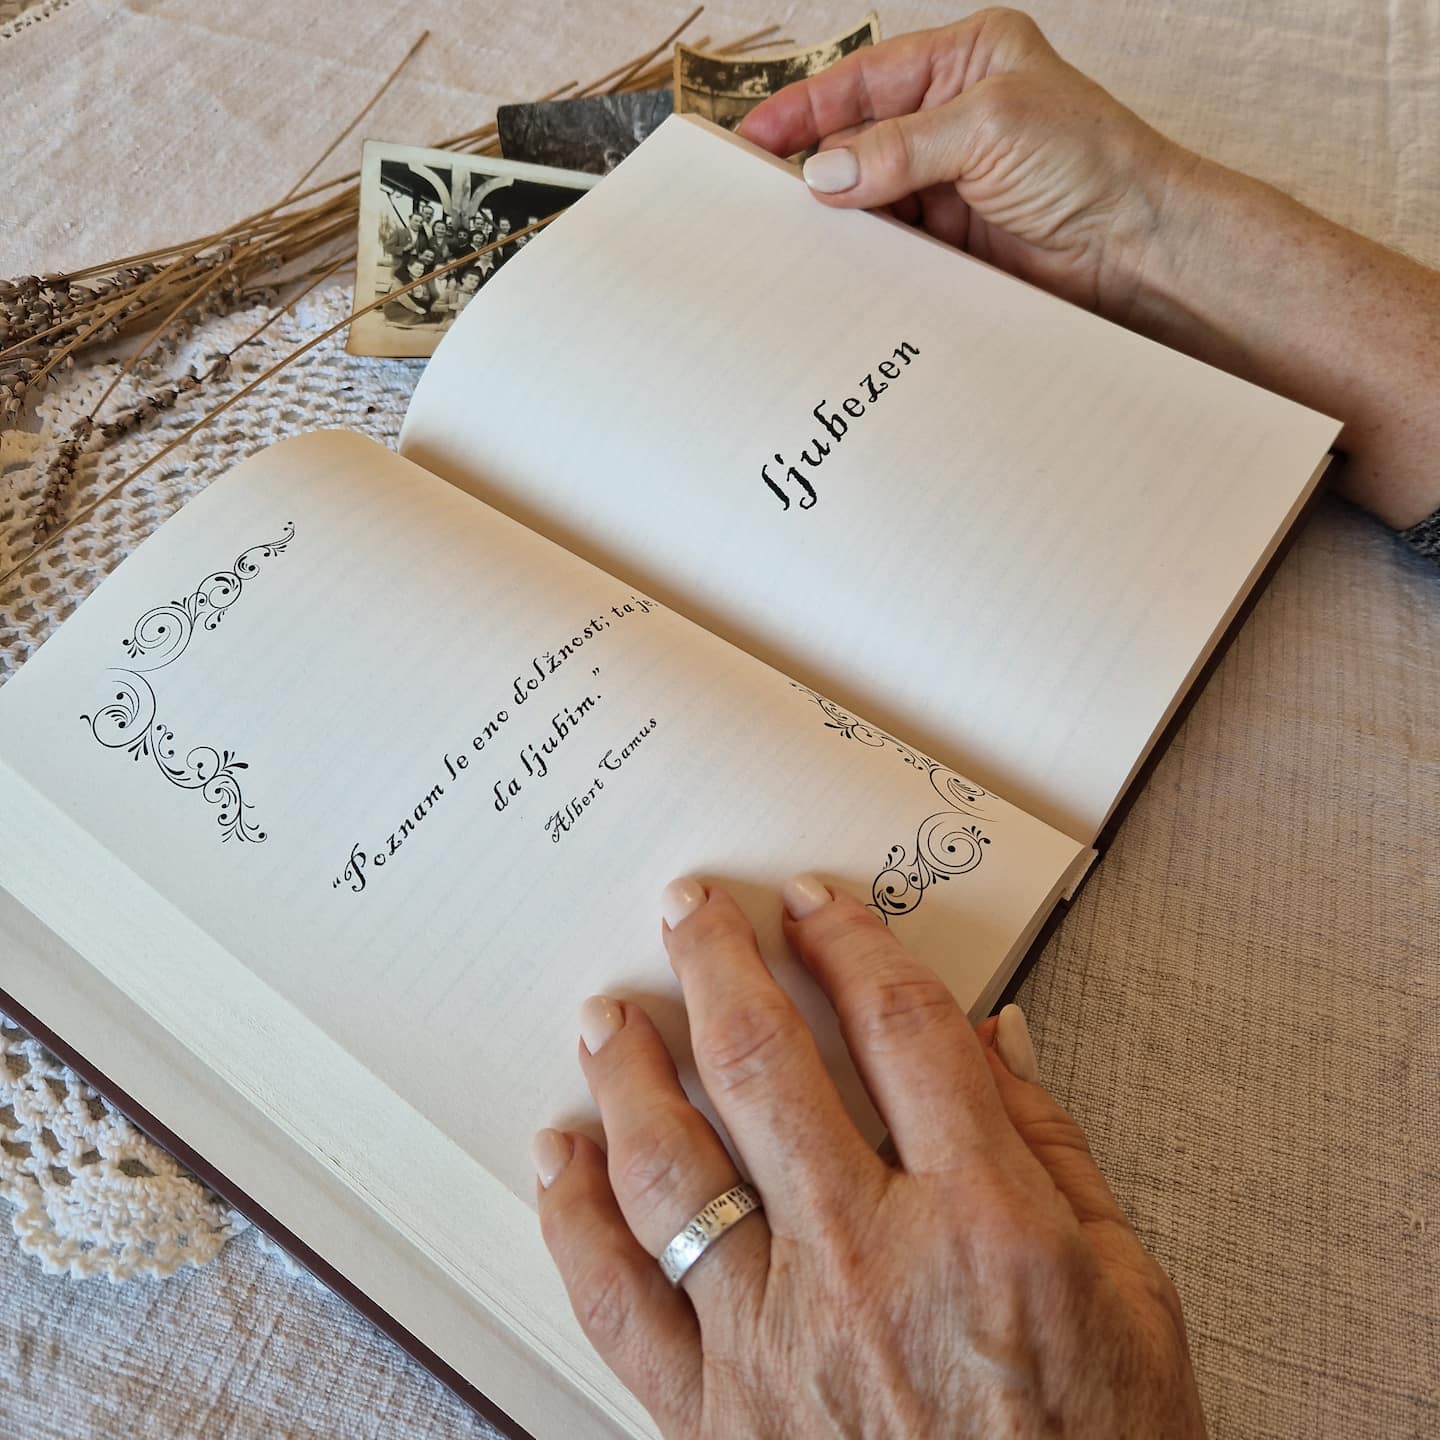 “Poznam le eno dolžnost; ta je,
da ljubim.”
Albert Camus
ljubezen